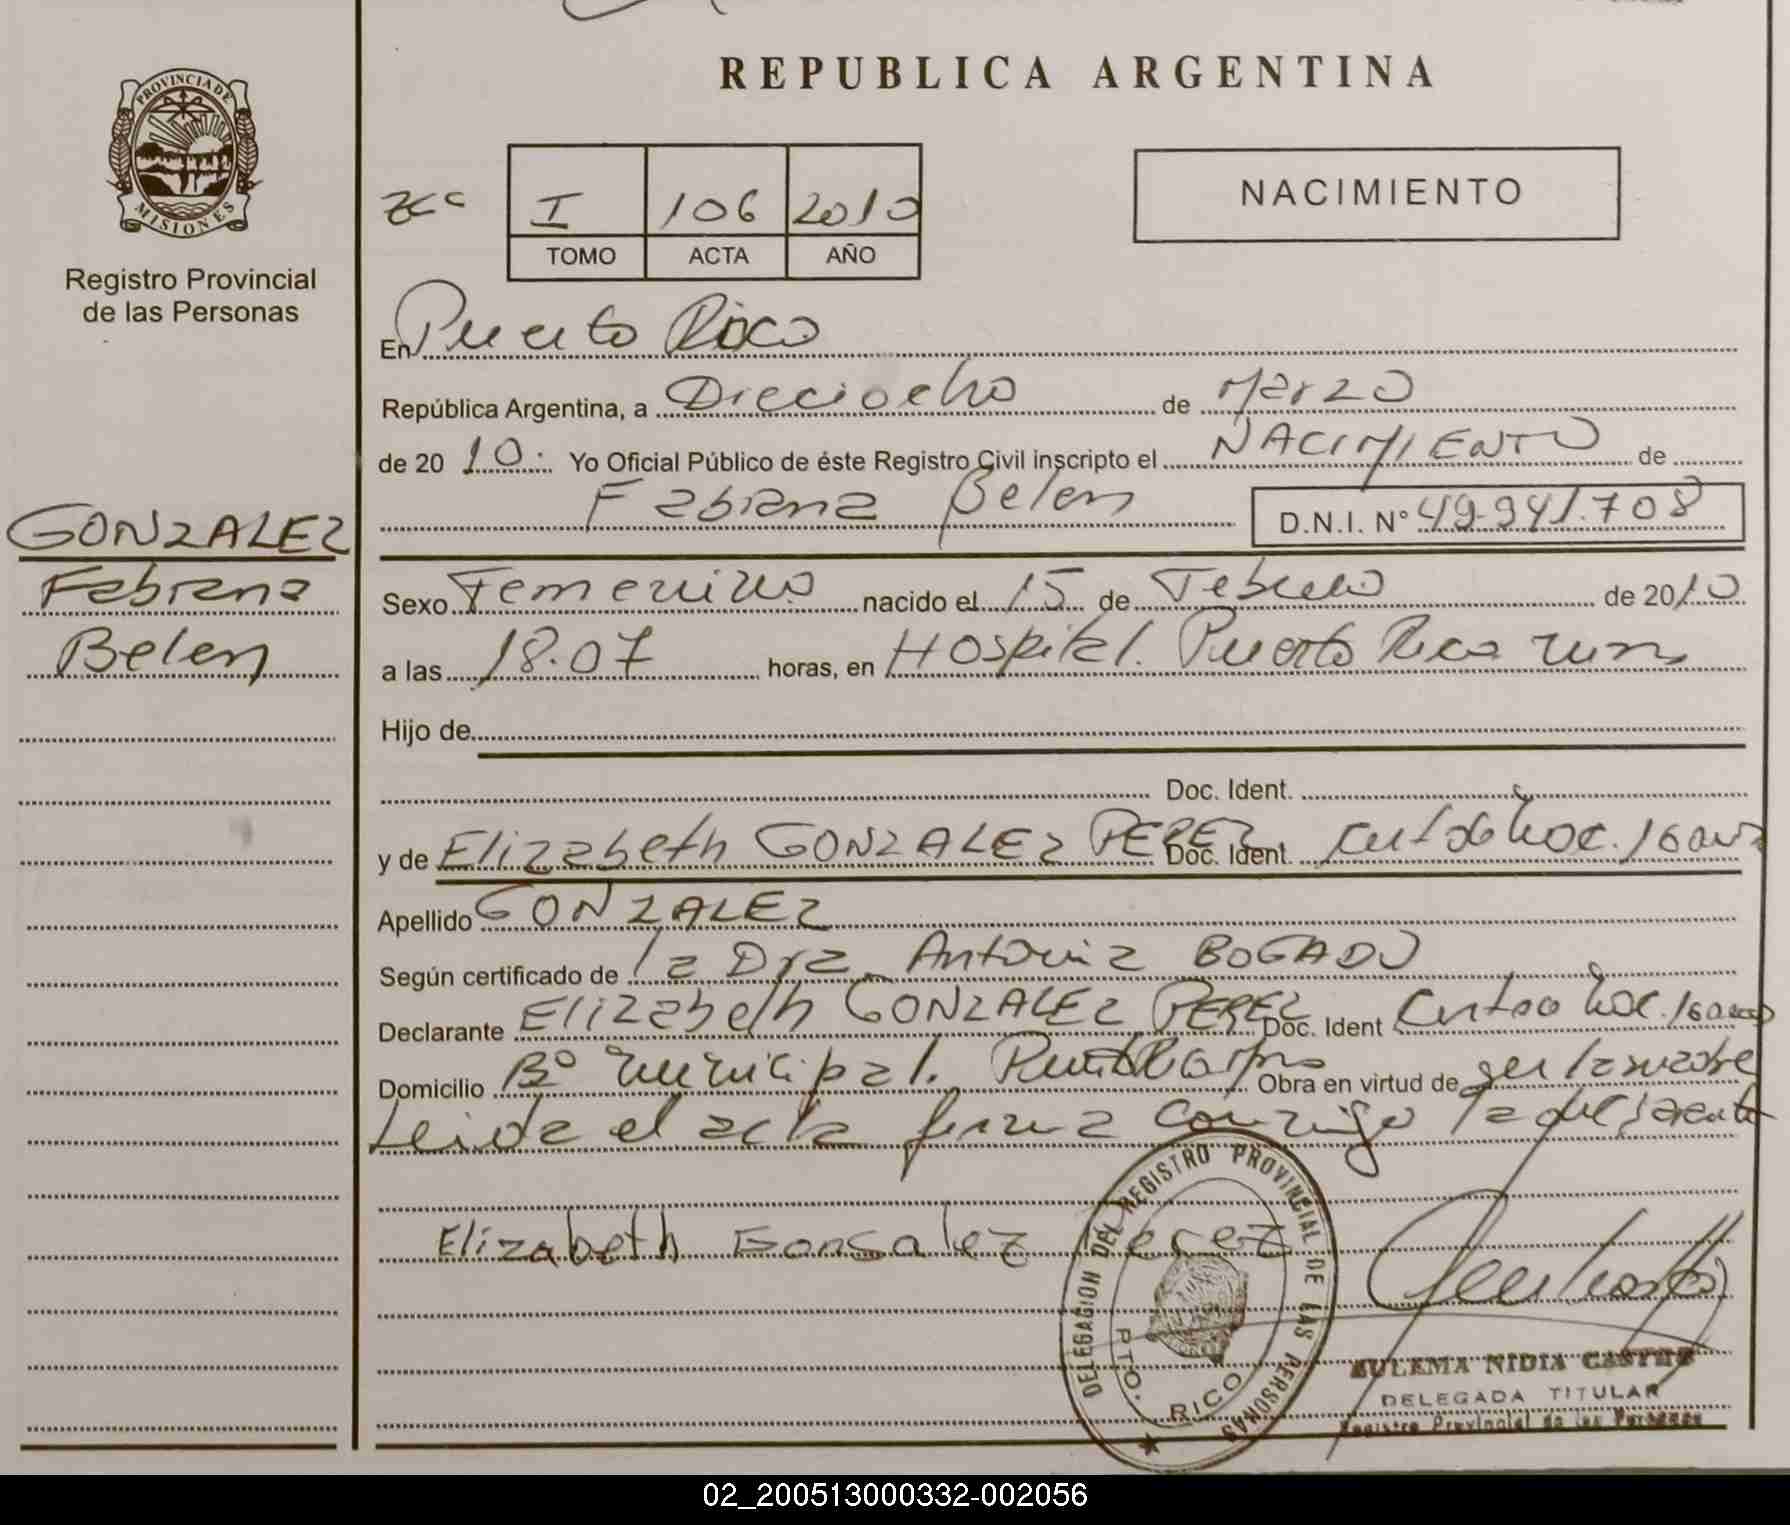 REPUBLICA ARGENTINA
PROVINCIA DE
MISIONES
Registro Provincial
de las Personas
I 106 2010
TOMO ACTA AÑO
NACIMIENTO
En Puerto Rico
República Argentina, a Dieciocho de Marzo
de 2010. Yo Oficial Público de éste Registro Civil inscripto el NACIMIENTO de
Fabiana Belen D.N.I. Nº 49.941.708
GONZALEZ
Fabiana
Belen
Sexo Femenino nacido el 15 de Febrero de 2010
a las 18.07 horas, en Hospital. Puerto Rico
Hijo de
Doc. Ident.
y de Elizabeth GONZALEZ PEREZ Doc. Ident. 16
Apellido GONZALEZ
Según certificado de la Dra. Antonia BOGADO
Declarante Elizabeth GONZALEZ PEREZ Doc. Ident 16
Domicilio Bº Municipal. Obra en virtud de ser la madre
Leida el acta firma conmigo la declarante
Elizabeth Gonsalez Perez
DELEGACION DEL REGISTRO PROVINCIAL DE LAS PERSONAS
PTO. RICO
ZULEMA NIDIA CASTRO
DELEGADA TITULAR
Registro Provincial de las Personas
02_200513000332-002056